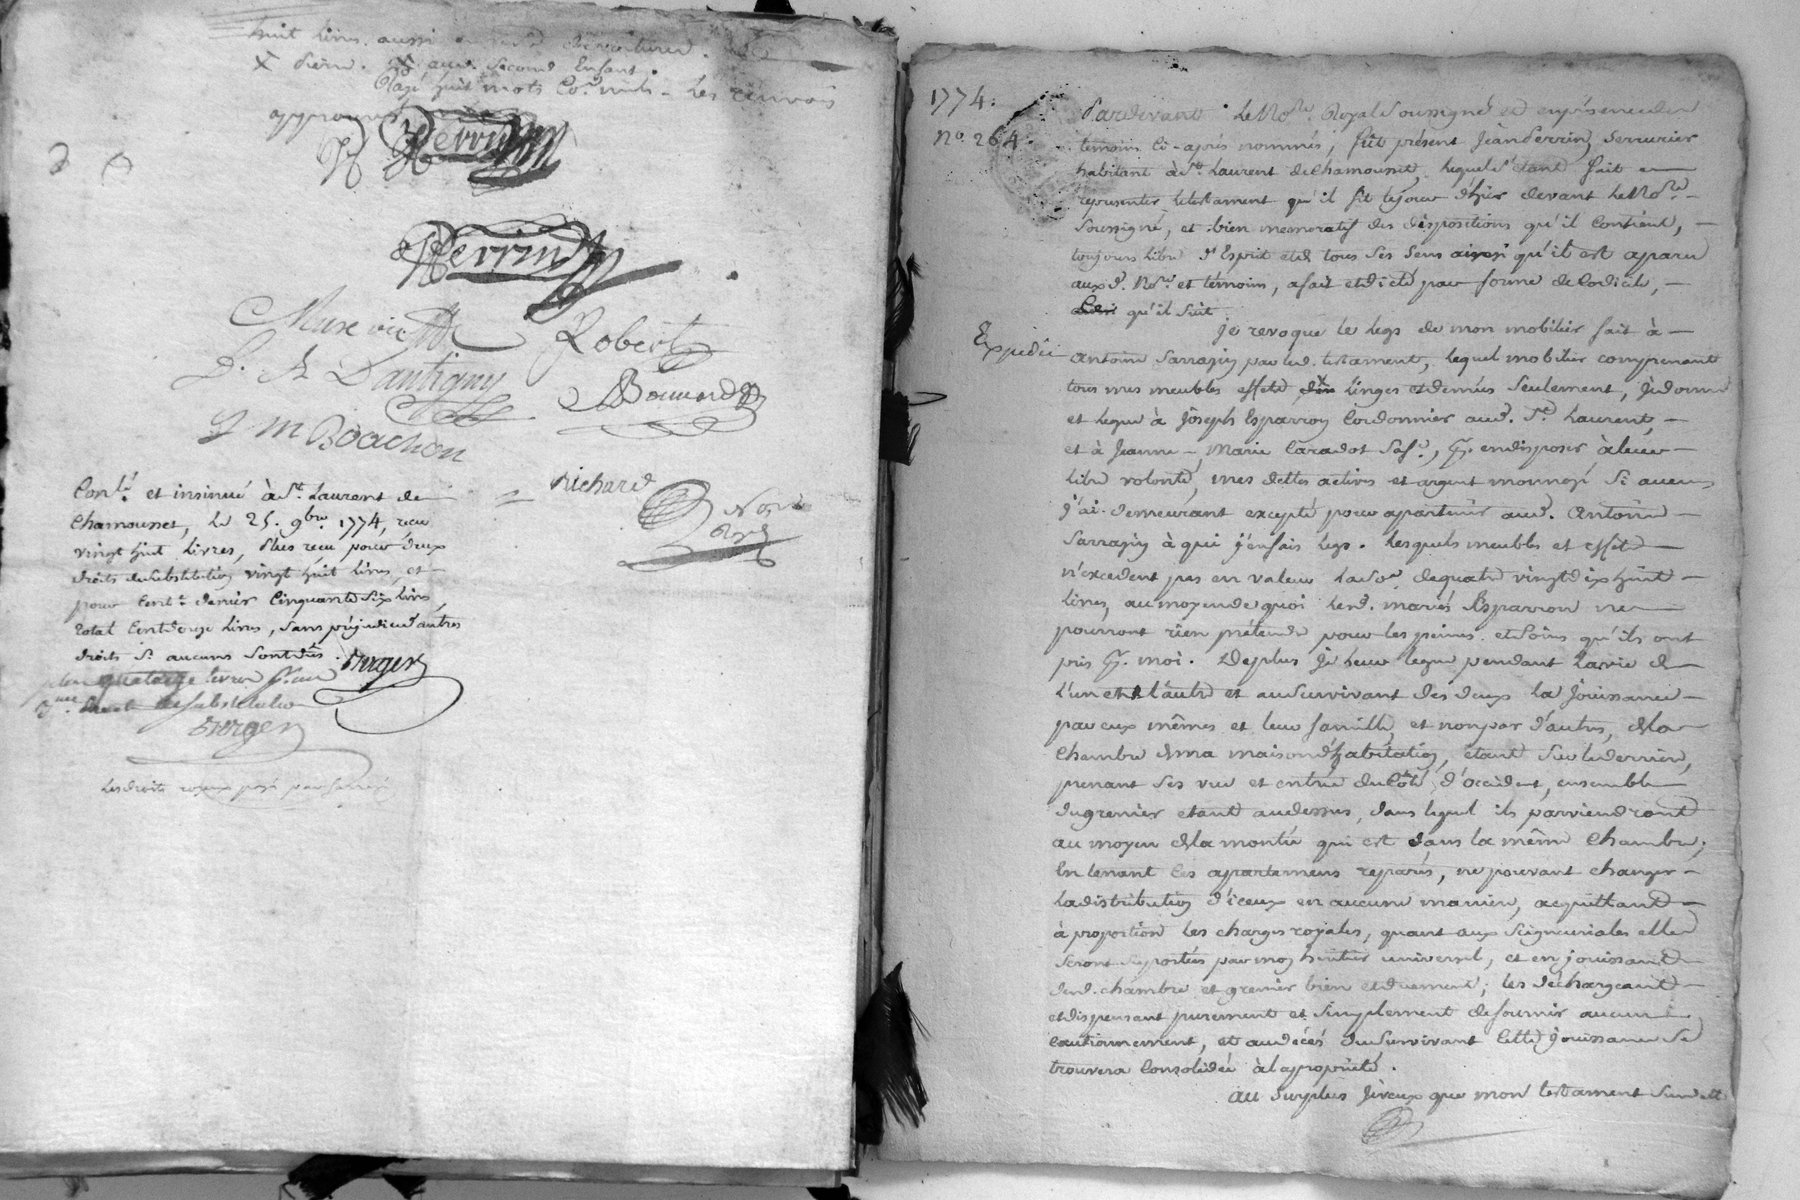 huit livres aussi
X Pierre. X aud. second Enfant.
Rayé huit mots co.e nuls. Les renvois
approuvés
Perrin
Perrin
Muxe vic. Robert
Dantigny Bouvard
J M Boachon
Richard
Not.e
Royal
Con.lé et insinué à St. Laurent de
Chamousset, le 25. 9bre. 1774, reçu
vingt huit livres, Plus reçu pour deux
droits de substitution vingt huit livres, et
pour Cent.e denier Cinquante six livres,
total Cent douze livres, sans préjudice d'autres
droits si aucuns sont dûs. Berger
quatorze livres
substitution
Berger
Les droits
1774.
N.o 264.
Expedié
Pardevant le No.re Royal soussigné et en présence des
temoins ci-après nommés, fût présent Jean Perrin, serrurier
habitant à St. Laurent de Chamousset, lequel s'étant fait
représenter le testament qu'il fit le jour d'hier devant le No.re
soussigné, et bien memoratif des dispositions qu'il contient,
toujours libre d'Esprit et de tous ses sens ainsi qu'il est aparu
auxd. No.re et témoins, a fait et dicté par forme de Codicile,
qu'il suit
je revoque le legs de mon mobilier fait à
Antoine Sarrazin par led. testament, lequel mobilier comprenant
tous mes meubles effets, linges et denrées seulement, je donne
et legue à Joseph Esparron Cordonnier aud. St. Laurent,
et à Jeanne Marie Caradot sa f.e, p.r en disposer à leur
libre volonté, mes dettes actives et argent monnoyé si aucun
j'ai demeurant excepté pour apartenir aud. Antoine
Sarrazin à qui j'en fais legs. Lesquels meubles et effets
n'excedent pas en valeur la so.e de quatre vingt dix huit
livres, au moyen de quoi lesd. mariés Esparron ne
pourront rien prétendre pour les peines et soins qu'ils ont
pris p.r moi. Deplus je leur legue pendant la vie de
l'un et l'autre et au survivant des deux la jouissance
par eux mêmes et leur famille, et non par d'autres, de la
chambre de ma maison d'habitation, étant sur le derrier,
prenant ses vue et entrée du Côté d'occident, ensemble
du grenier étant au dessus, dans lequel ils parviendront
au moyen de la montée qui est dans la même Chambre,
En tenant les apartemens reparés, ne pouvant changer
la distribution d'iceux en aucune maniere, acquittant
à proportion les charges royales, quant aux seigneuriales elles
seront suportées par mon heritier universel, et en jouissant
desd. chambre et grenier bien et duement; les déchargeant
et dispensant purement et simplement de fournir aucun
cautionnement, et au décés du survivant cette jouissance se
trouvera Consolidée à la proprieté.
Au surplus je veux que mon testament